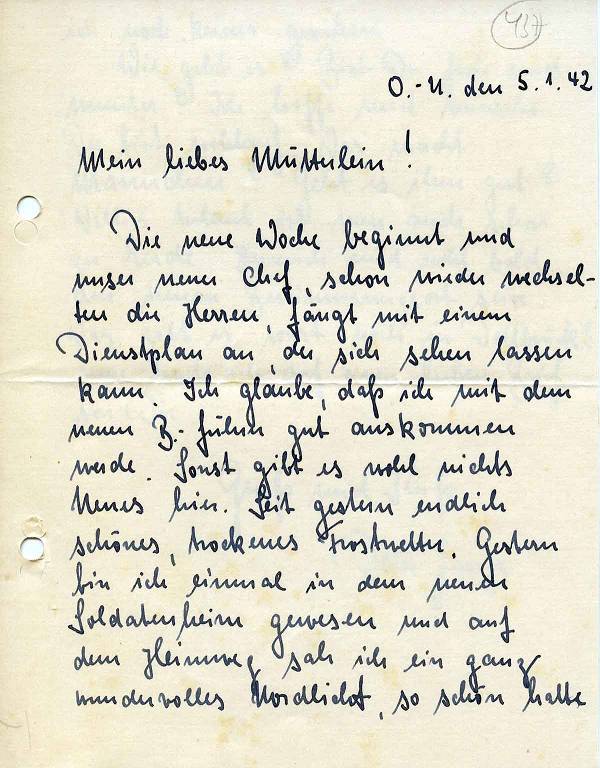 437
O.-U. den 5.1.42
Mein liebes Mütterlein!
Die neue Woche beginnt und
unser neuer Chef, schon wieder wechsel-
ten die Herren, fängt mit einem
Dienstplan an, der sich sehen lassen
kann. Ich glaube, daß ich mit dem
neuen B.-Führer gut auskommen
werde. Sonst gibt es wohl nichts
Neues hier. Seit gestern endlich
schönes, trockenes Frostwetter. Gestern
bin ich einmal in dem neuen
Soldatenheim gewesen und auf
dem Heimweg sah ich ein ganz
wundervolles Nordlicht, so schön hatte